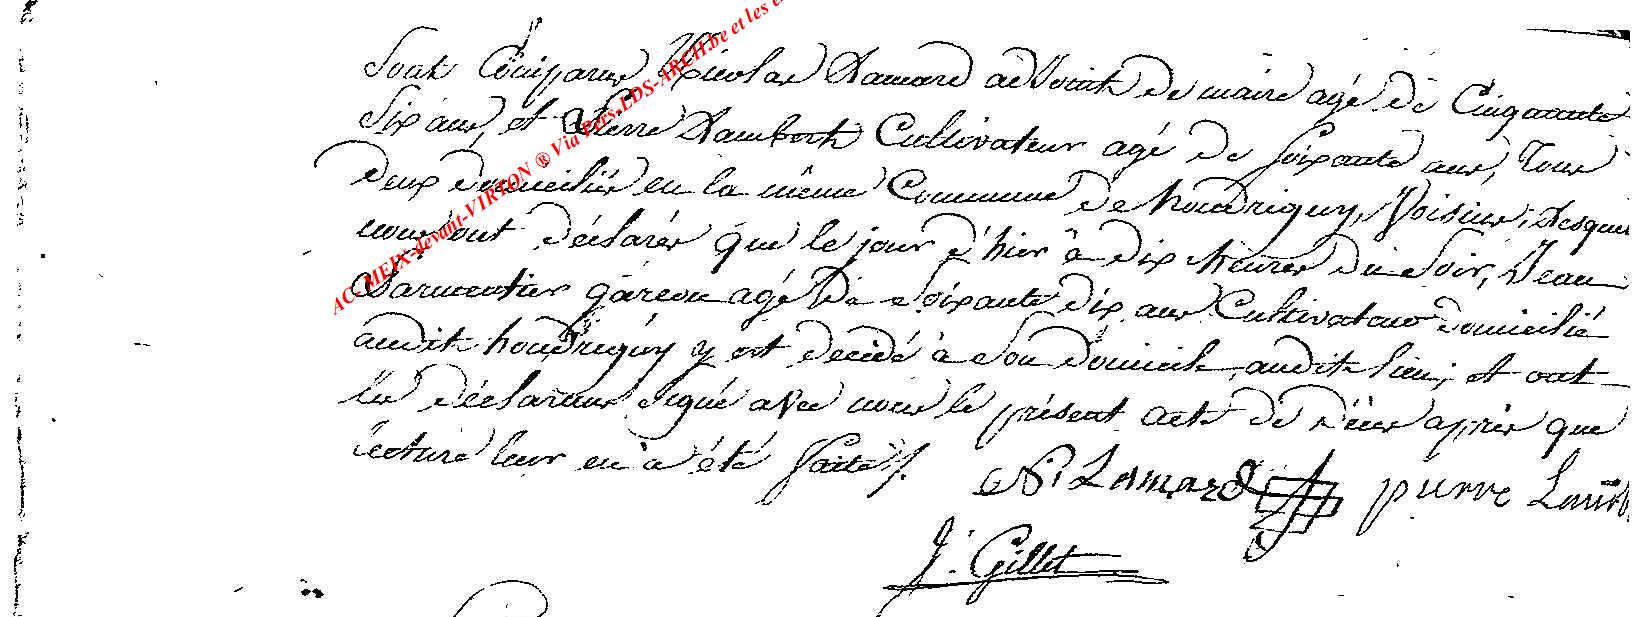 Sont Comparus Nicolas Lamard adjoint de maire agé de Cinquante
Six ans, et Pierre Lambert Cultivateur agé de soixante ans, Tous
deux domiciliés en la même Commune de houdrigny, Voisins, Lesquels
nous ont déclarés que le jour d'hier à dix heures du Soir, Jean
Darmentier garçon agé de Soixante dix ans Cultivateur domicilié
audit houdrigny y est decidé à Son domicile audit lieu, et ont
les déclarans signé avec nous le présent acte de décès après que
lecture leur en a été faite /.
N. Lamard pierre Lamb
J. Gillet
AC-MEIX-devant-VIRTON ® Via Pers.LDS-ARCH.be et les